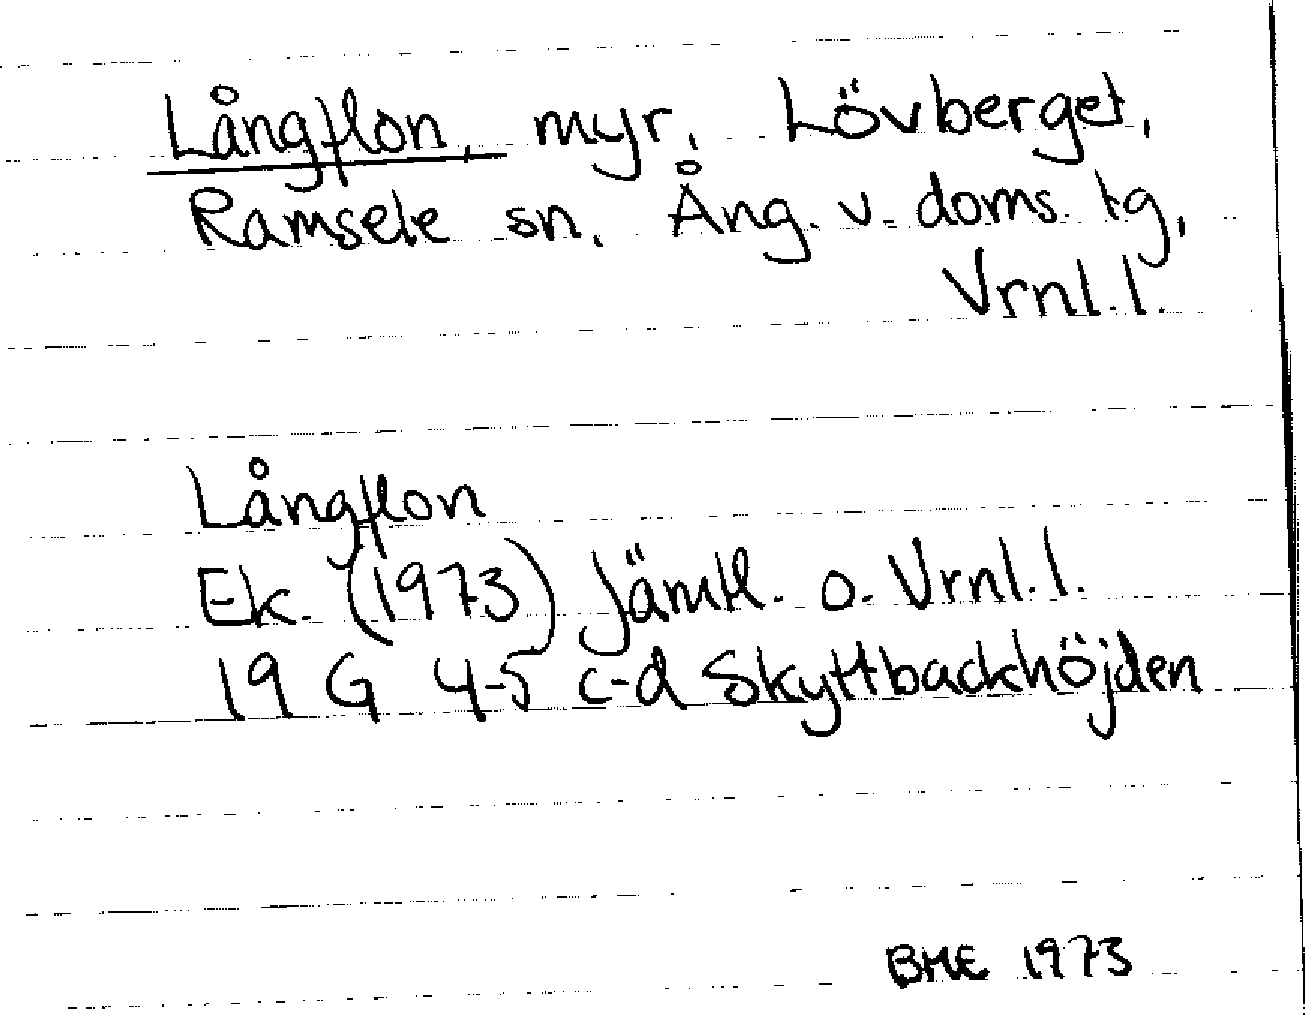 Långflon, myr. Lövberget,
Ramsele sn. Ång. v. doms. tg,
Vrnl.l.
Långflon
Ek. (1973) Jämtl. o. Vrnl.l.
19 G 4-5 c-d Skyttbackhöjden
BME 1973